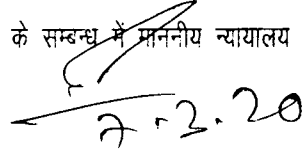 के सम्बन्ध में माननीय न्यायालय
7.3.20